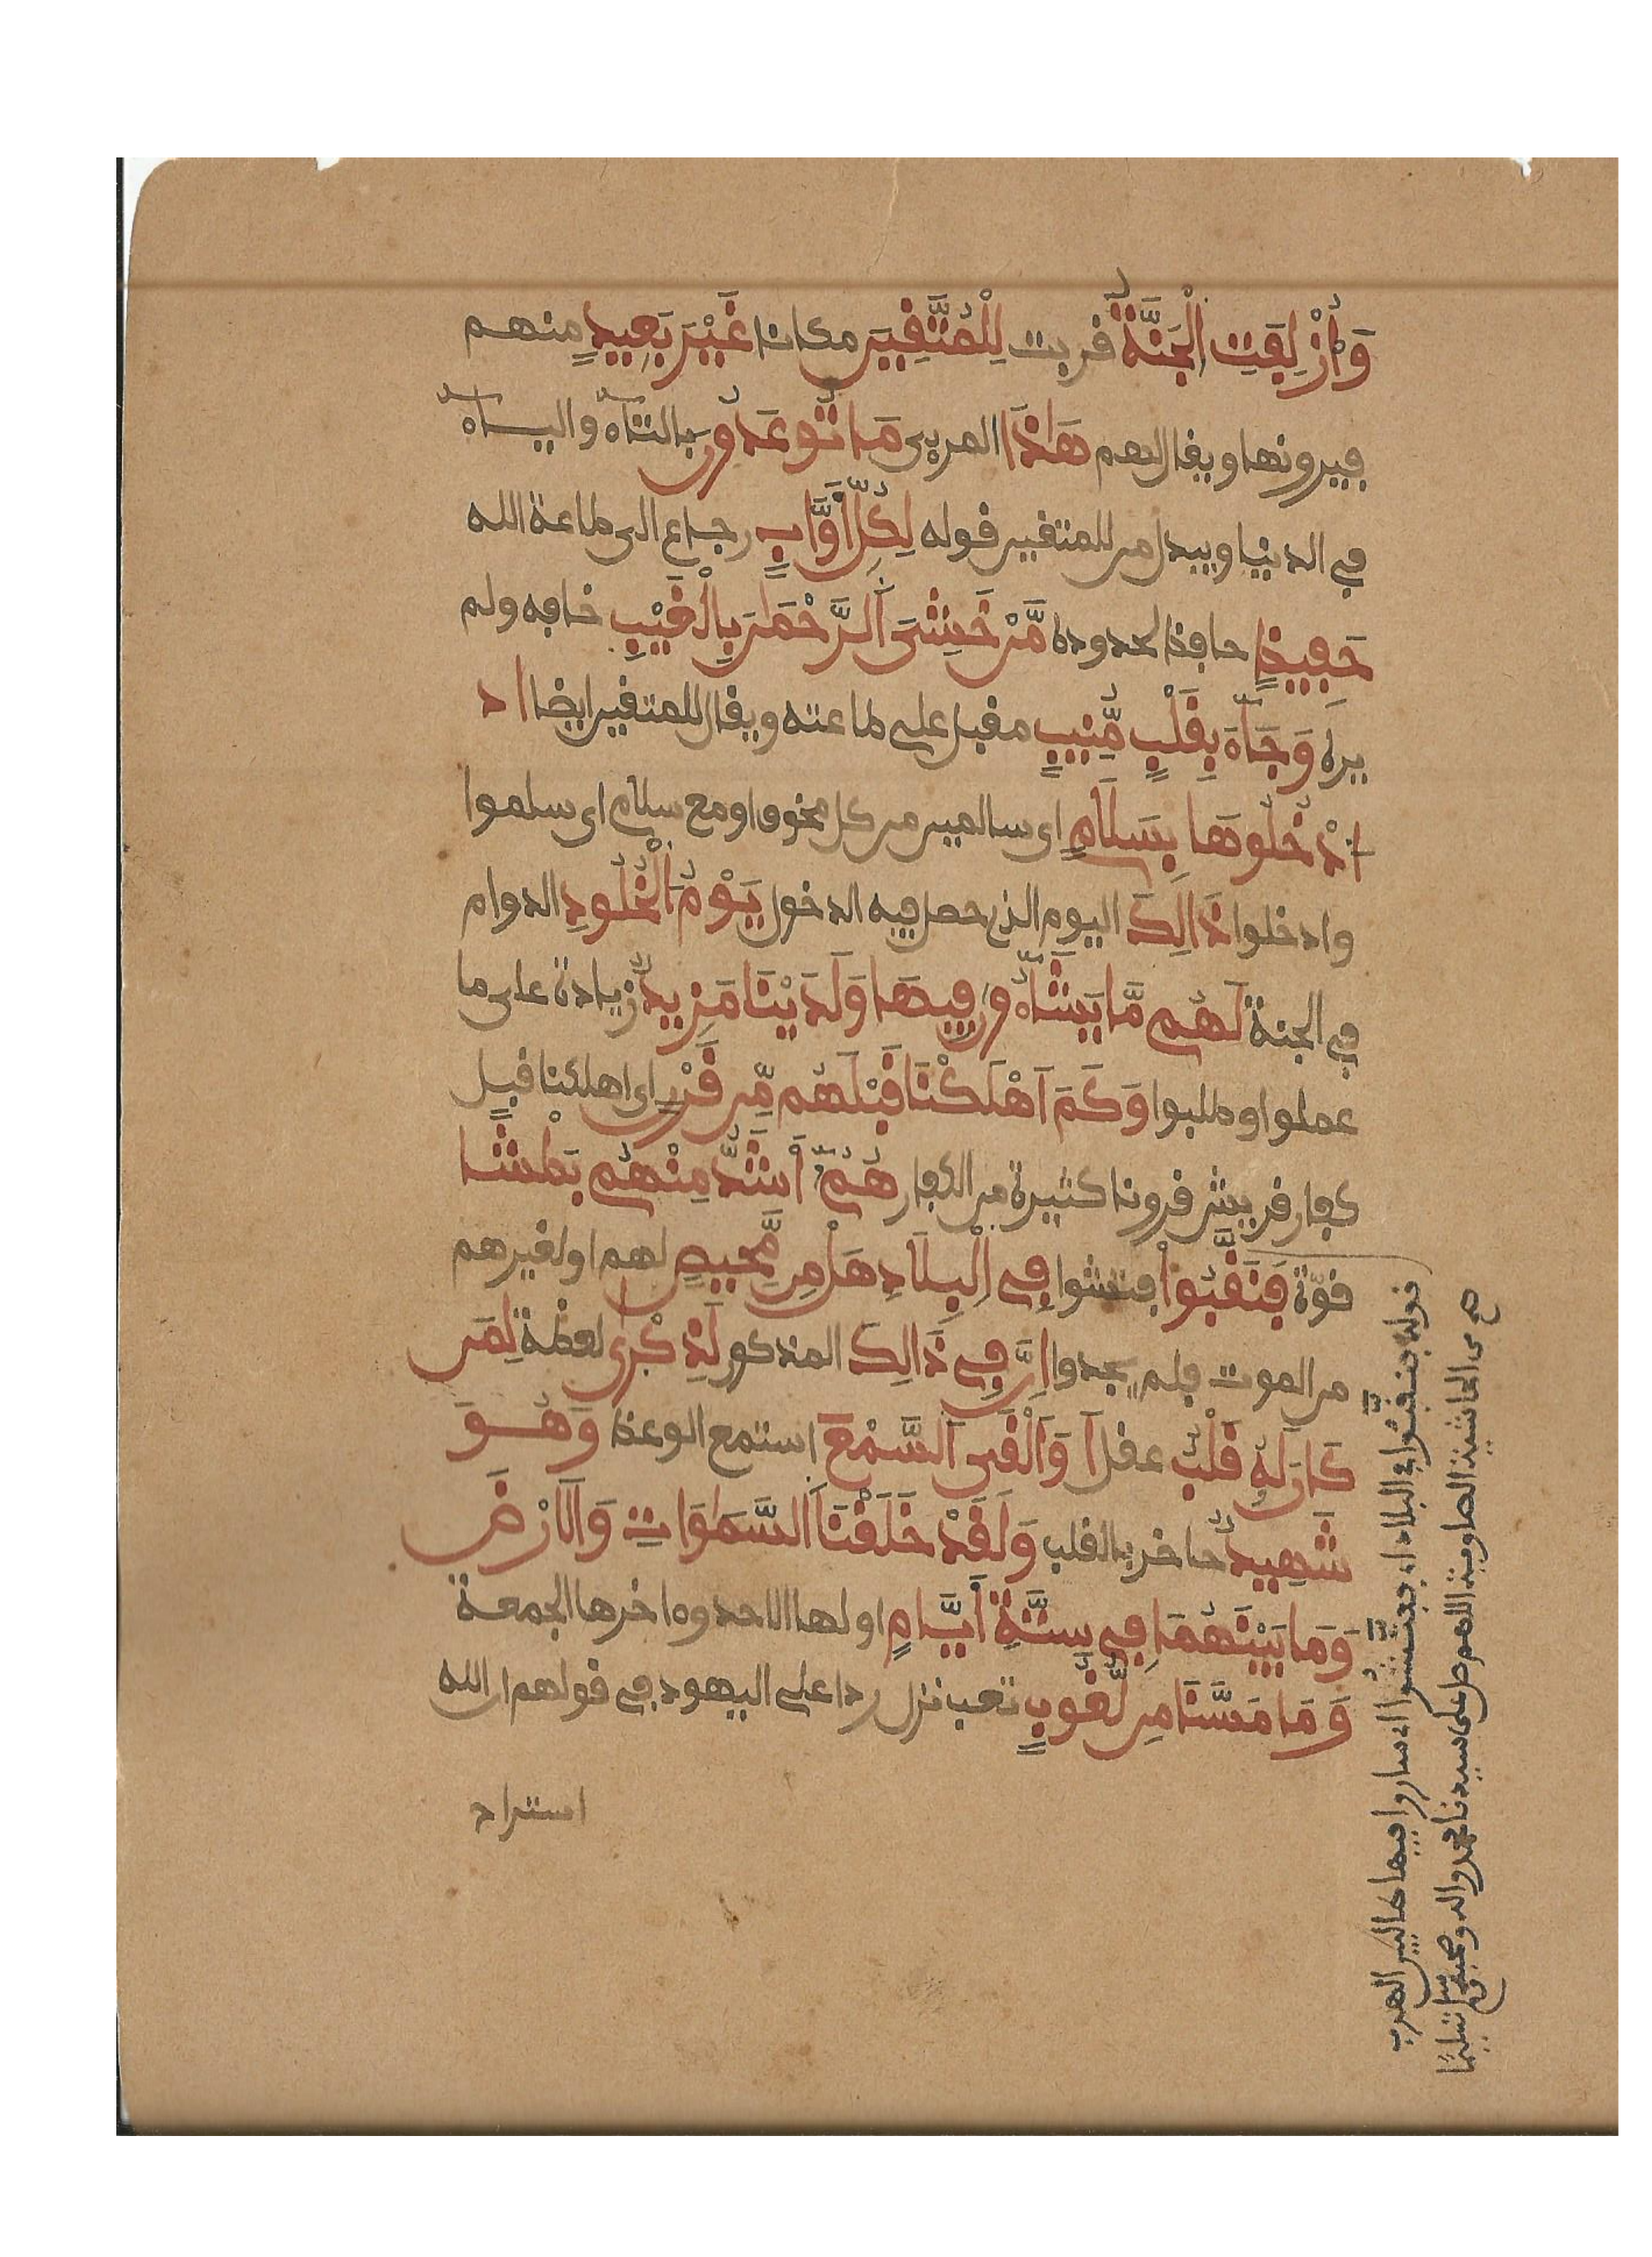 وَأُزْلِفَتِ اِلْجَنَّةُ قربت لِلْمُتَّقِينَ مكانا غَيْرَ بَعِيدٍ منهم
فيرونها ويقال لهم هَاذَا المرءى مَا تُوعَدُونَ بالتاء والياء
في الدنيا ويبدل من للمتقين قوله لِكُلِّ أَوَّابٍ رجاع الى طاعة الله
حَفِيظٍ حافظ لحدوده مَّنْ خَشِىَ اَلرَّحْمَٰنَ بِالْغَيْبِ خافه ولم
يره وَجَآءَ بِقَلْبٍ مُّنِيبٍ مقبل على طاعته ويقال للمتقين ايضا اد
ادْخُلُوهَا بِسَلَامٍ اى سالمين من كل مخوف او مع سلام اى سلموا
وادخلوا ذَالِكَ اليوم الذى حصل فيه الدخول يَوْمُ اُلْخُلُودِ الدوام
في الجنة لَهُم مَّا يَشَآءُونَ فِيهَا وَلَدَيْنَا مَزِيدٌ زيادة على ما
عملوا وطلبوا وَكَمَ اَهْلَكْنَا قَبْلَهُم مِّن قَرْنٍ اى اهلكنا قبل
كفار قريش قرونا كثيرة من الكفار هُمُ أَشَدُّ مِنْهُم بَطْشًا
قوّة فَنَقَّبُوا فتشوا فِى اِلْبِلَادِ هَلْ مِن مَّحِيصٍ لهم او لغيرهم
من الموت فلم يجدوا إِنَّ فِى ذَالِكَ المذكور لَذِكْرَىٰ لعظة لِمَن
كَانَ لَهُ قَلْبٌ عقل اَوَ اَلْقَى اَلسَّمْعَ استمع الوعظ وَهُوَ
شَهِيدٌ حاضر بالقلب وَلَقَدْ خَلَقْنَا اَلسَّمَٰوَاتِ وَالَارْضَ
وَمَا بَيْنَهُمَا فِى سِتَّةِ أَيَّامٍ اولها الاحد وءاخرها الجمعة
وَمَا مَسَّنَا مِن لُّغُوبٍ تعب نزل ردا على اليهود في قولهم ان الله
استراد
قوله فنقّبوا في البلاد اى فتّشوا اى ساروا فيها طالبين الهرب
من الحاشية الصاوية اللهم صل على سيدنا محمد واله وصحبه وسلم تسليما